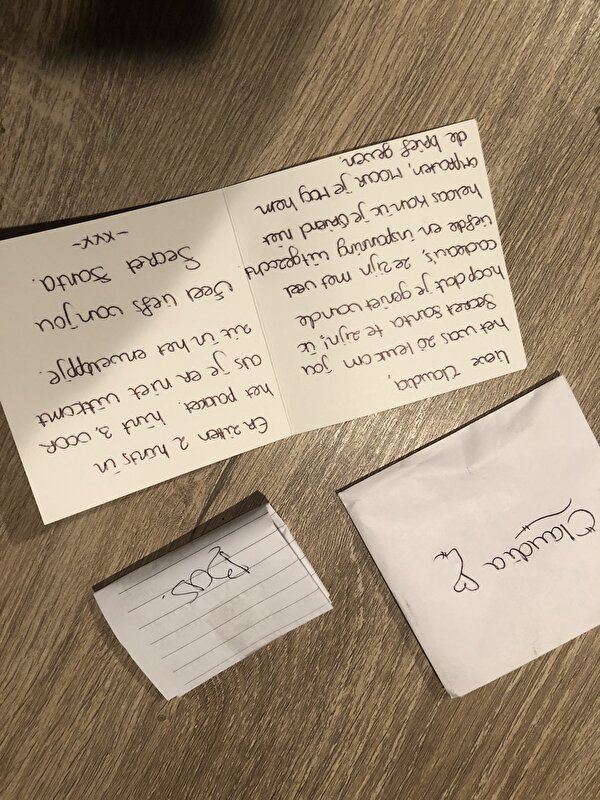 Lieve Claudia,
het was zo leuk om jou
Secret Santa te zijn, ik
hoop dat je geniet van de
cadeau's, ze zijn met veel
liefde en inspanning uitgezocht
helaas kon ik je vriend niet
maar je mag hem
de brief geven.
Er zitten 2 hints in
het pakket. hint 3, voor
als je er niet uitkomt
zit in het envelopje.
Veel liefs van jou
Secret Santa.
-xxx-
Claudia
Bas.